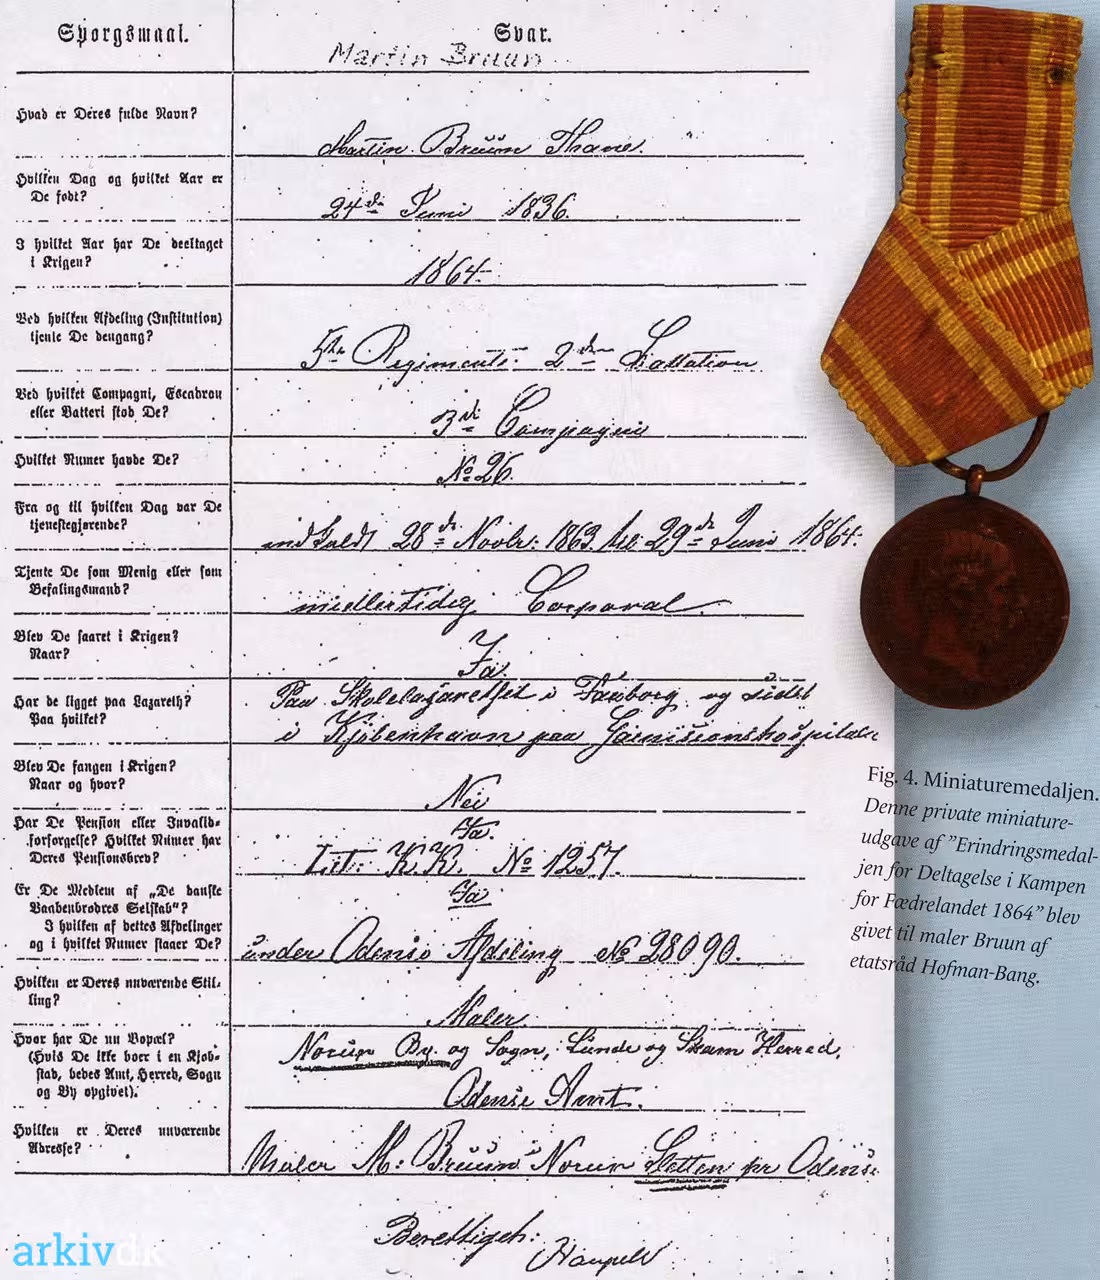 Spörgsmaal.
Svar.
Martin Bruun
Hvad er Deres fulde Navn?
Martin Bruun Thane
Hvilken Dag og hvilket Aar er
De født?
24de Juni 1836.
I hvilket Aar har De deeltaget
i Krigen?
1864
Ved hvilken Afdeling (Institution)
tjente De dengang?
5te Regiments 2den Battalion
Ved hvilket Compagni, Escadron
eller Batteri stod De?
3de Compagnie
Hvilket Numer havde De?
No 26.
Fra og til hvilken Dag var De
tjenestegjørende?
indkaldt 28de Novbr: 1863 til 29de Juni 1864.
Tjente De som Menig eller som
Befalingsmand?
midlertidig Corporal.
Blev De saaret i Krigen?
Naar?
Ja.
Har De ligget paa Lazareth?
Paa hvilket?
Paa Skolelazarethet i Faaborg og sidst
i Kjöbenhavn paa Garnisionshospitalet
Blev De fangen i Krigen?
Naar og hvor?
Nei
Har De Pension eller Invalid-
forsørgelse? Hvilket Numer har
Deres Pensionsbrev?
Ja.
Litt: K.K. No 1257.
Er De Medlem af „De danske
Vaabenbrødres Selskab“?
I hvilken af dettes Afdelinger
og i hvilket Numer staaer De?
Ja
under Odense Afdeling No 28090.
Hvilken er Deres nuværende Stil-
ling?
Maler.
Hvor har De nu Bopæl?
(Hvis De ikke boer i en Kjøb-
stad, bedes Amt, Herred, Sogn
og By opgivet).
Norup By og Sogn, Lunde og Skam Herred,
Odense Amt.
Hvilken er Deres nuværende
Adresse?
Maler M: Bruun Norup Sletten pr Odense
Berettiget:
Fig. 4. Miniaturemedaljen.
Denne private miniature-
udgave af "Erindringsmedal-
jen for Deltagelse i Kampen
for Fædrelandet 1864" blev
givet til maler Bruun af
etatsråd Hofman-Bang.
arkivdk